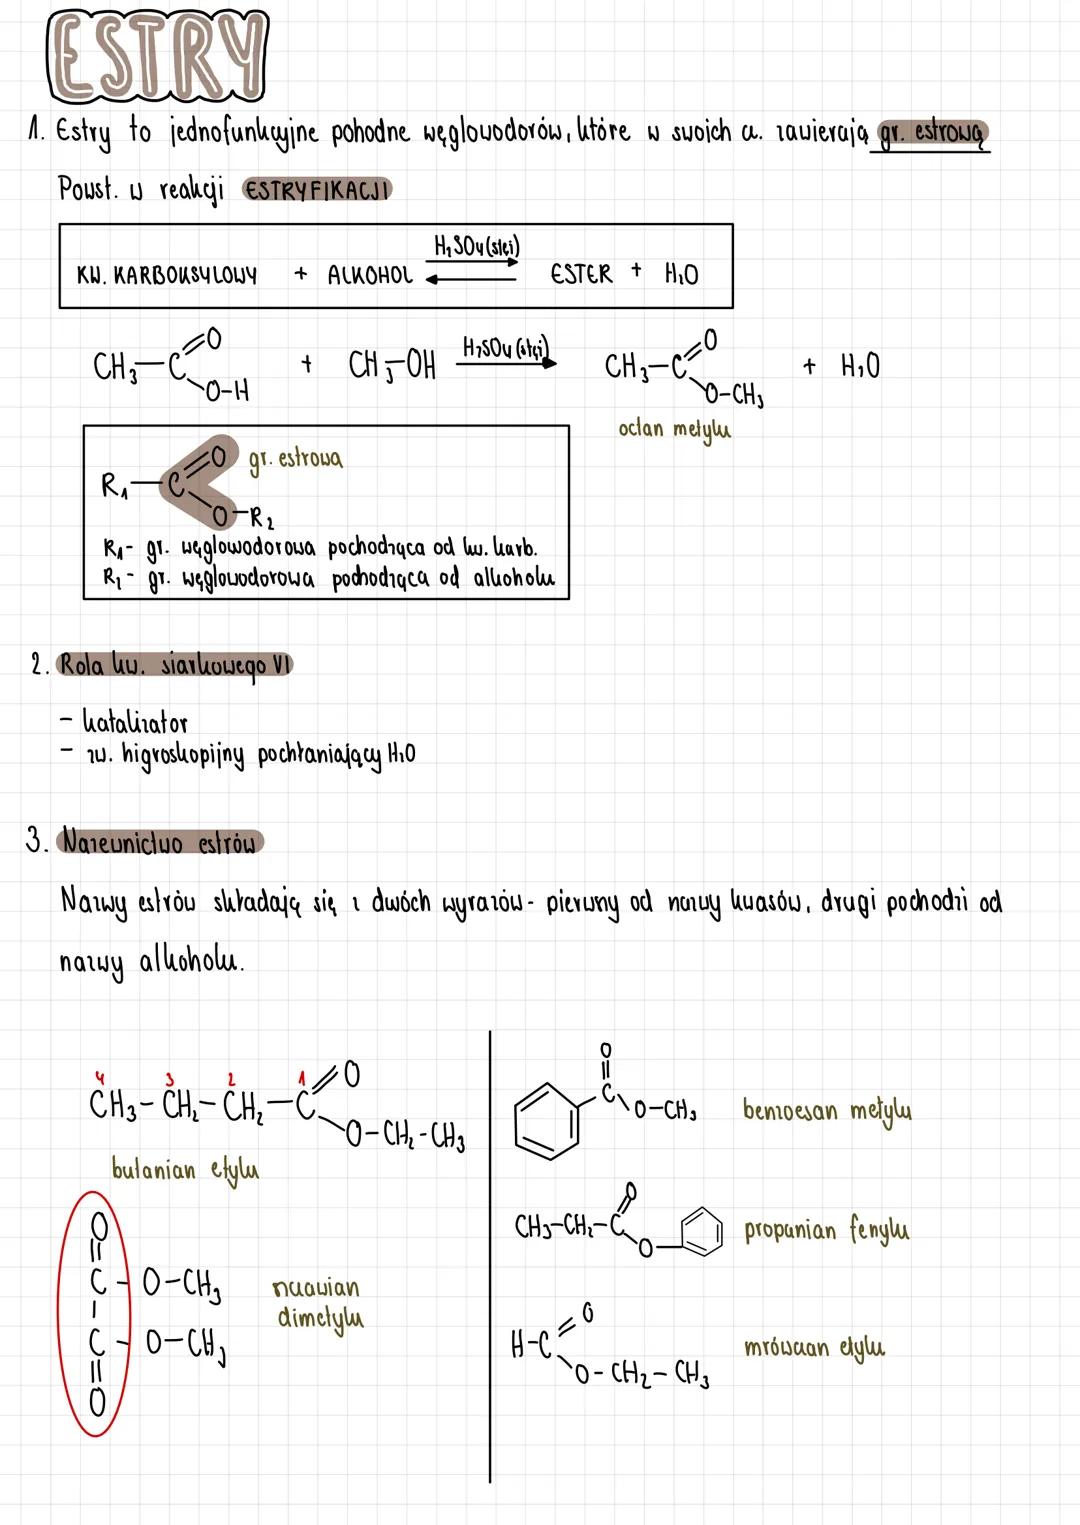 ESTRY
1. Estry to jednofunkcyjne pohodne węglowodorów, które w swoich cz. zawierają gr. estrową
Powst. w reakcji ESTRYFIKACJI
H₂SO₄(stęż)
KW. KARBOKSYLOWY + ALKOHOL ⇄ ESTER + H₂O
CH₃—C=O O-H + CH₃-OH H₂SO₄(stęż) → CH₃-C=O O-CH₃ + H₂O
octan metylu
R₁—C=O O-R₂ gr. estrowa
R₁- gr. węglowodorowa pochodząca od kw. karb.
R₂- gr. węglowodorowa pochodząca od alkoholu
2. Rola kw. siarkowego VI
- katalizator
- zw. higroskopijny pochłaniający H₂O
3. Nazewnictwo estrów
Nazwy estrów składają się z dwóch wyrazów- pierwszy od nazwy kwasów, drugi pochodzi od
nazwy alkoholu.
4 3 2 1
CH₃-CH₂-CH₂-C=O O-CH₂-CH₃
butanian etylu
O=C-O-CH₃
O=C-O-CH₃
szczawian
dimetylu
O=C O-CH₃ benzoesan metylu
CH₃-CH₂-C=O O propanian fenylu
H-C=O O-CH₂-CH₃ mrówczan etylu